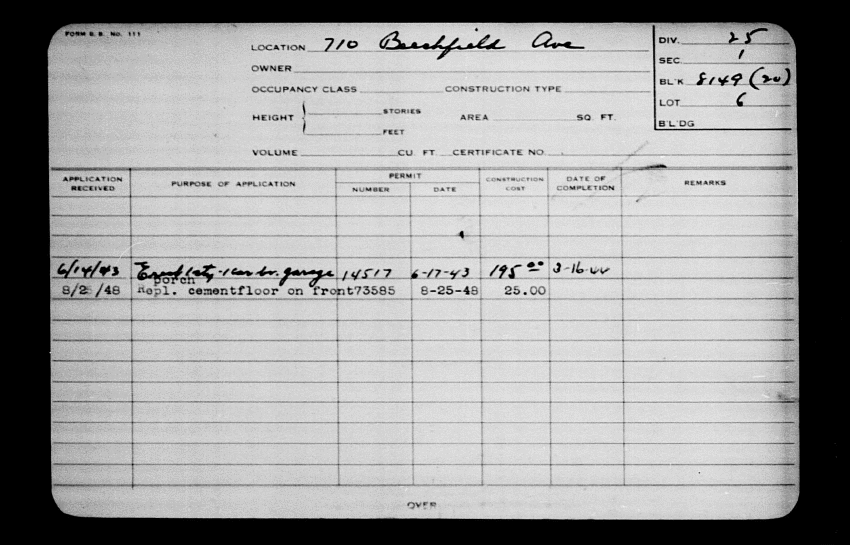 FORM B. B. NO. 111
LOCATION 710 Beechfield Ave
OWNER
OCCUPANCY CLASS CONSTRUCTION TYPE
HEIGHT STORIES FEET AREA SQ. FT.
VOLUME CU. FT. CERTIFICATE NO.
DIV. 25
SEC. 1
BL'K 8149 (20)
LOT 6
B'L'DG
APPLICATION RECEIVED PURPOSE OF APPLICATION PERMIT NUMBER DATE CONSTRUCTION COST DATE OF COMPLETION REMARKS
6/14/43 Erect 1 sty - 1 car br. garage 14517 6-17-43 195 00 3-16-44
porch
8/2 /48 Repl. cementfloor on front 73585 8-25-48 25.00
OVER